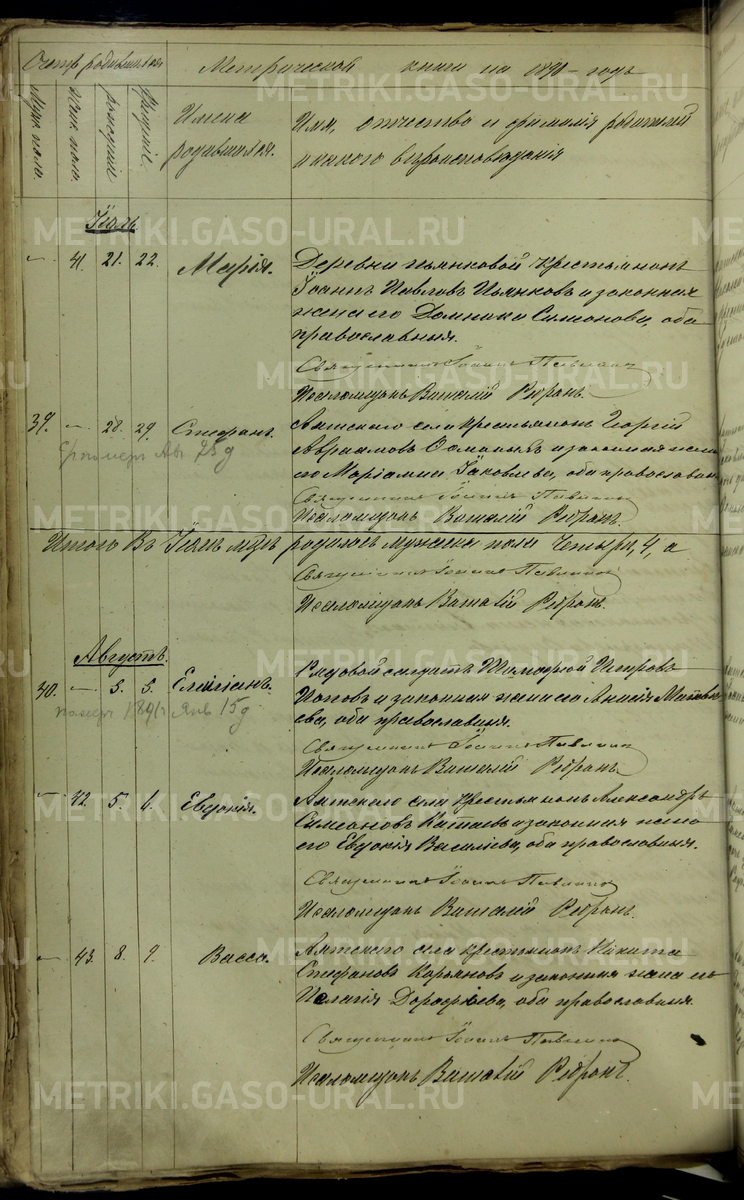 Счетъ родившихся
Метрической книги на 1890 годъ
Муж. пола.
Жен. пола.
рожденія
крещенія.
Имена
родившихся.
Имя, отчество и фамилія родителей
и какого вѣроисповѣданія
Іюль.
41. 21. 22. Марія.
Деревни Пьянковой крестьянинъ
Іоаннъ Павловъ Пьянковъ и законная
жена его Домника Симеонова, оба
православныя.
Священникъ Іоаннъ
Псаломщикъ Виталій
39. 28. 29. Стефанъ.
Аятскаго села крестьянинъ Георгій
Авраамовъ и законная жена
его Маріамна Іаковлева, оба православныя
Священникъ Іоаннъ
Псаломщикъ Виталій
Итого въ Іюлѣ м-цѣ родилось мужеска пола четыре, 4, а
Священникъ Іоаннъ
Псаломщикъ Виталій
Августъ.
3. 5. Емиліанъ.
Рядовой солдатъ Тимофей Петровъ
Поповъ и законная жена его Анисія Матвѣ-
ева, оба православныя.
Священникъ Іоаннъ
Псаломщикъ Виталій
42. 5. 6. Евдокія.
Аятскаго села крестьянинъ Александръ
Симеоновъ Катаевъ и законная жена
его Евдокія Василіева, оба православныя.
Священникъ Іоаннъ
Псаломщикъ Виталій
43. 8. 9. Васса.
Аятскаго села крестьянинъ Никита
Стефановъ Корьяковъ и законная жена его
Пелагія Дорофеева, оба православныя.
Священникъ Іоаннъ
Псаломщикъ Виталій
METRIKI.GASO-URAL.RU